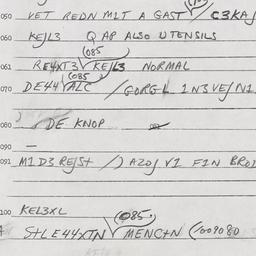 050 VET REDN M1T A GAST / C3KA
060 KEJL3 Q AP ALSO UTENSILS
(085
061 RE4XT3 KEJL3 NORMAL
(085
070 DE44 ALC / GORGL 1N3VEJ/N1
080 / DE KNOP
090 —
091 M1D3 REJST /) AZOJ V1 F1N BROD
100 KEL3XL
(085.
S+LE44XTN MENC+N (/009080